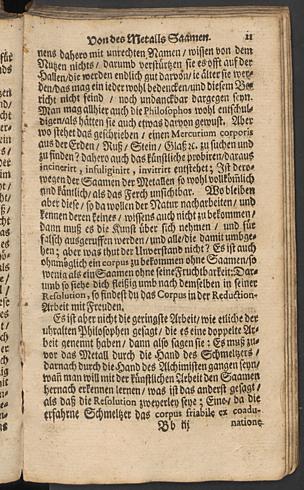 Von des Metalls Saamen. 11
nens dahero mit unrechten Namen / wissen von dem
Nutzen nichts / darumb verstürtzen sie es offt auf der
Hallen / die werden endlich gut darvon / ie älter sie wer-
den / das mag ein ieder wohl bedencken / und diesem Be-
richt nicht feind / noch undanckbar dargegen seyn.
Man mag allhier auch die Philosophos wohl entschul-
digen / als hätten sie auch etwas darvon gewust. Aber
wo stehet das geschrieben / einen Mercurium corporis
aus der Erden / Ruß / Stein / Glaß ꝛc. zu suchen und
zu finden? dahero auch das künstliche probiren / daraus
incinerirt, infuliginirt, invitrirt entstehet; Ist dero-
wegen der Saamen der Metallen so wohl vollkömlich
und künstlich / als das Ferch unsichtbar. Wo bleiben
aber diese / so da wollen der Natur nacharbeiten / und
kennen deren keines / wissens auch nicht zu bekommen /
dann muß es die Kunst über sich nehmen / und für
falsch ausgeruffen werden / und alle / die damit umbge-
hen; aber was thut der Unverstand nicht? Es ist auch
ohnmöglich ein corpus zu bekommen ohne Saamen / so
wenig als ein Saamen ohne seine Fruchtbarkeit: Dar-
umb so siehe dich fleißig umb nach demselben in seiner
Resolution, so findest du das Corpus in der Reduction-
Arbeit mit Freuden.
Es ist aber nicht die geringste Arbeit / wie etliche der
uhralten Philosophen gesagt / die es eine doppelte Ar-
beit genennt haben / dann also sagen sie: Es muß zu-
vor das Metall durch die Hand des Schmeltzers /
darnach durch die Hand des Alchimisten gangen seyn /
wañ man will mit der künstlichen Arbeit den Saamen
hernach erkennen lernen / was ist das anderst gesagt /
als daß die Resolution zweyerley seye: Eine / da die
erfahrne Schmeltzer das corpus friabile ex coadu-
Bb iij natione